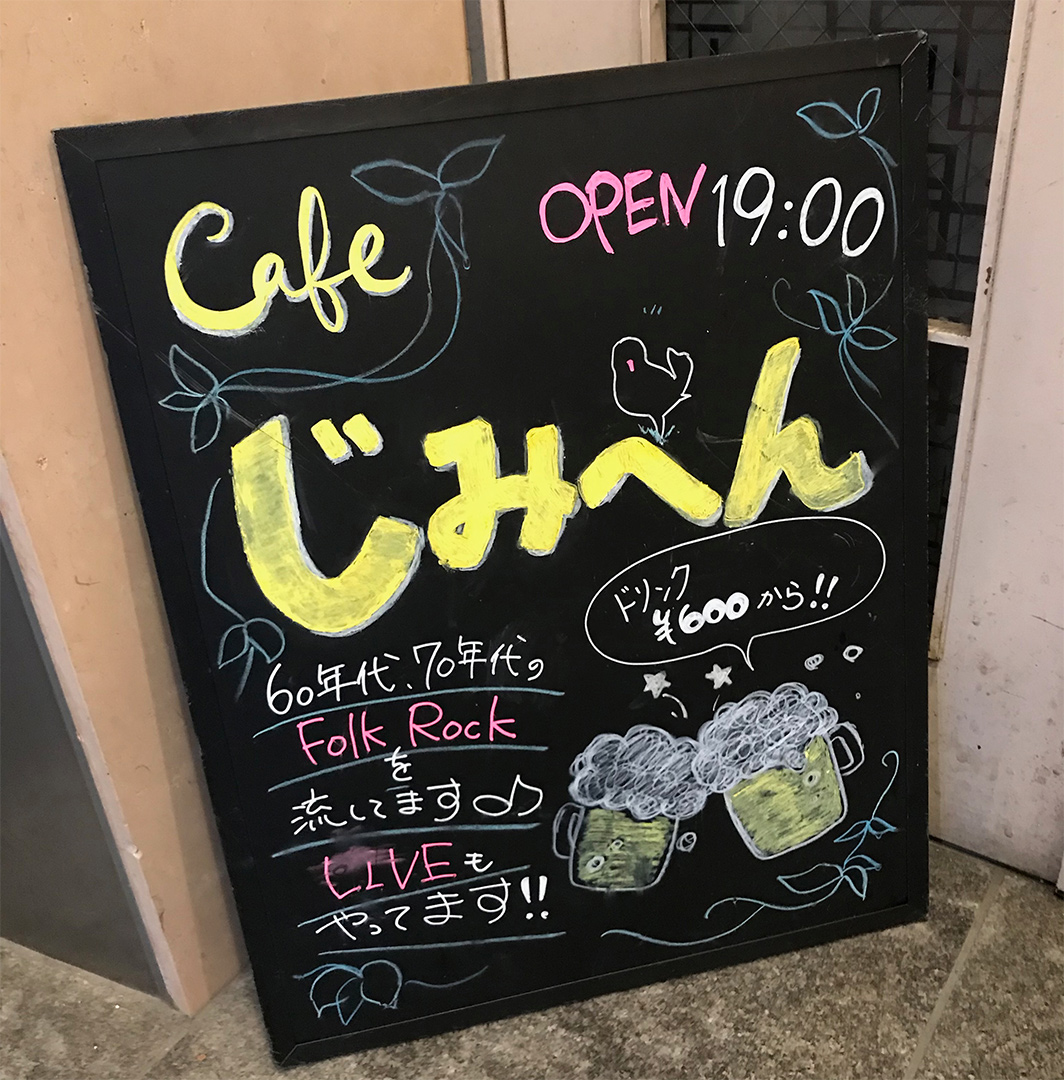 Cafe
OPEN 19:00
じみへん
ドリンク
¥600から!!
60年代、70年代の
Folk Rock
を
流してます♫
LIVEも
やってます!!